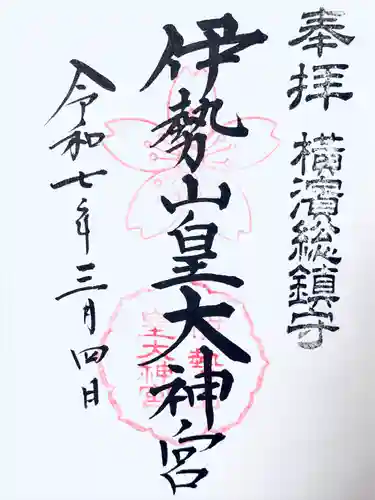 奉拝 横濱総鎮守
伊勢山皇大神宮
令和七年三月四日